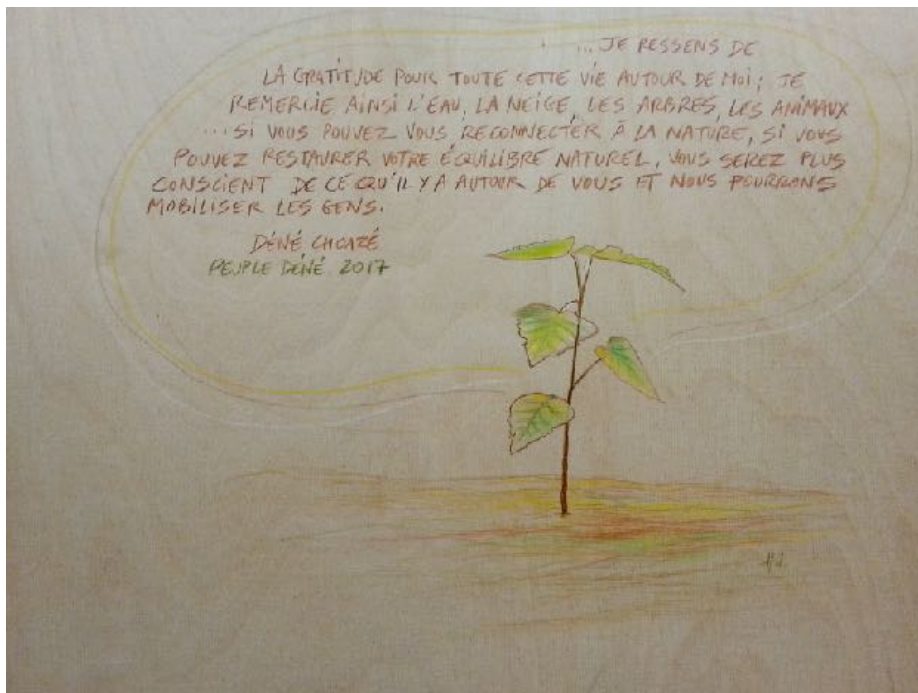 ...JE RESSENS DE
LA GRATITUDE POUR TOUTE CETTE VIE AUTOUR DE MOI; JE
REMERCIE AINSI L'EAU, LA NEIGE, LES ARBRES, LES ANIMAUX
...SI VOUS POUVEZ VOUS RECONNECTER À LA NATURE, SI VOUS
POUVEZ RESTAURER VOTRE ÉQUILIBRE NATUREL, VOUS SEREZ PLUS
CONSCIENT DE CE QU'IL Y A AUTOUR DE VOUS ET NOUS POURRONS
MOBILISER LES GENS.
DÉNÉ
PEUPLE DÉNÉ 2017